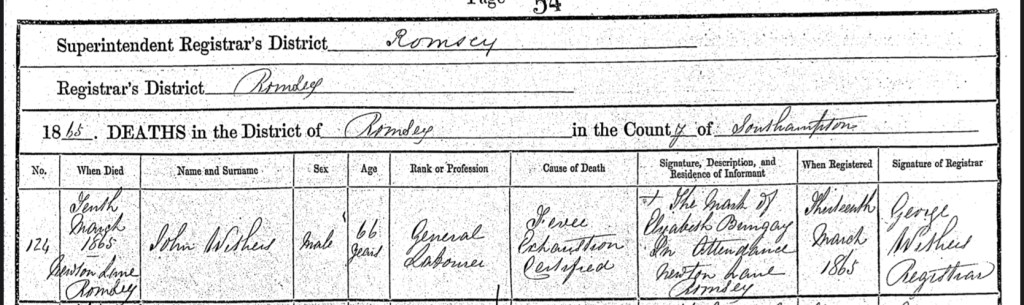 Page 54
Superintendent Registrar's District Romsey
Registrar's District Romsey
1865. DEATHS in the District of Romsey in the County of Southampton
No. When Died Name and Surname Sex Age Rank or Profession Cause of Death Signature, Description, and Residence of Informant When Registered Signature of Registrar
124
Tenth
March
1865
Newton Lane
Romsey
John Withers
Male
66
years
General
Labourer
Fever
Exhaustion
Certified
+ The Mark of
Elizabeth Bungay
In Attendance
Newton Lane
Romsey
Thirteenth
March
1865
George
Withers
Registrar